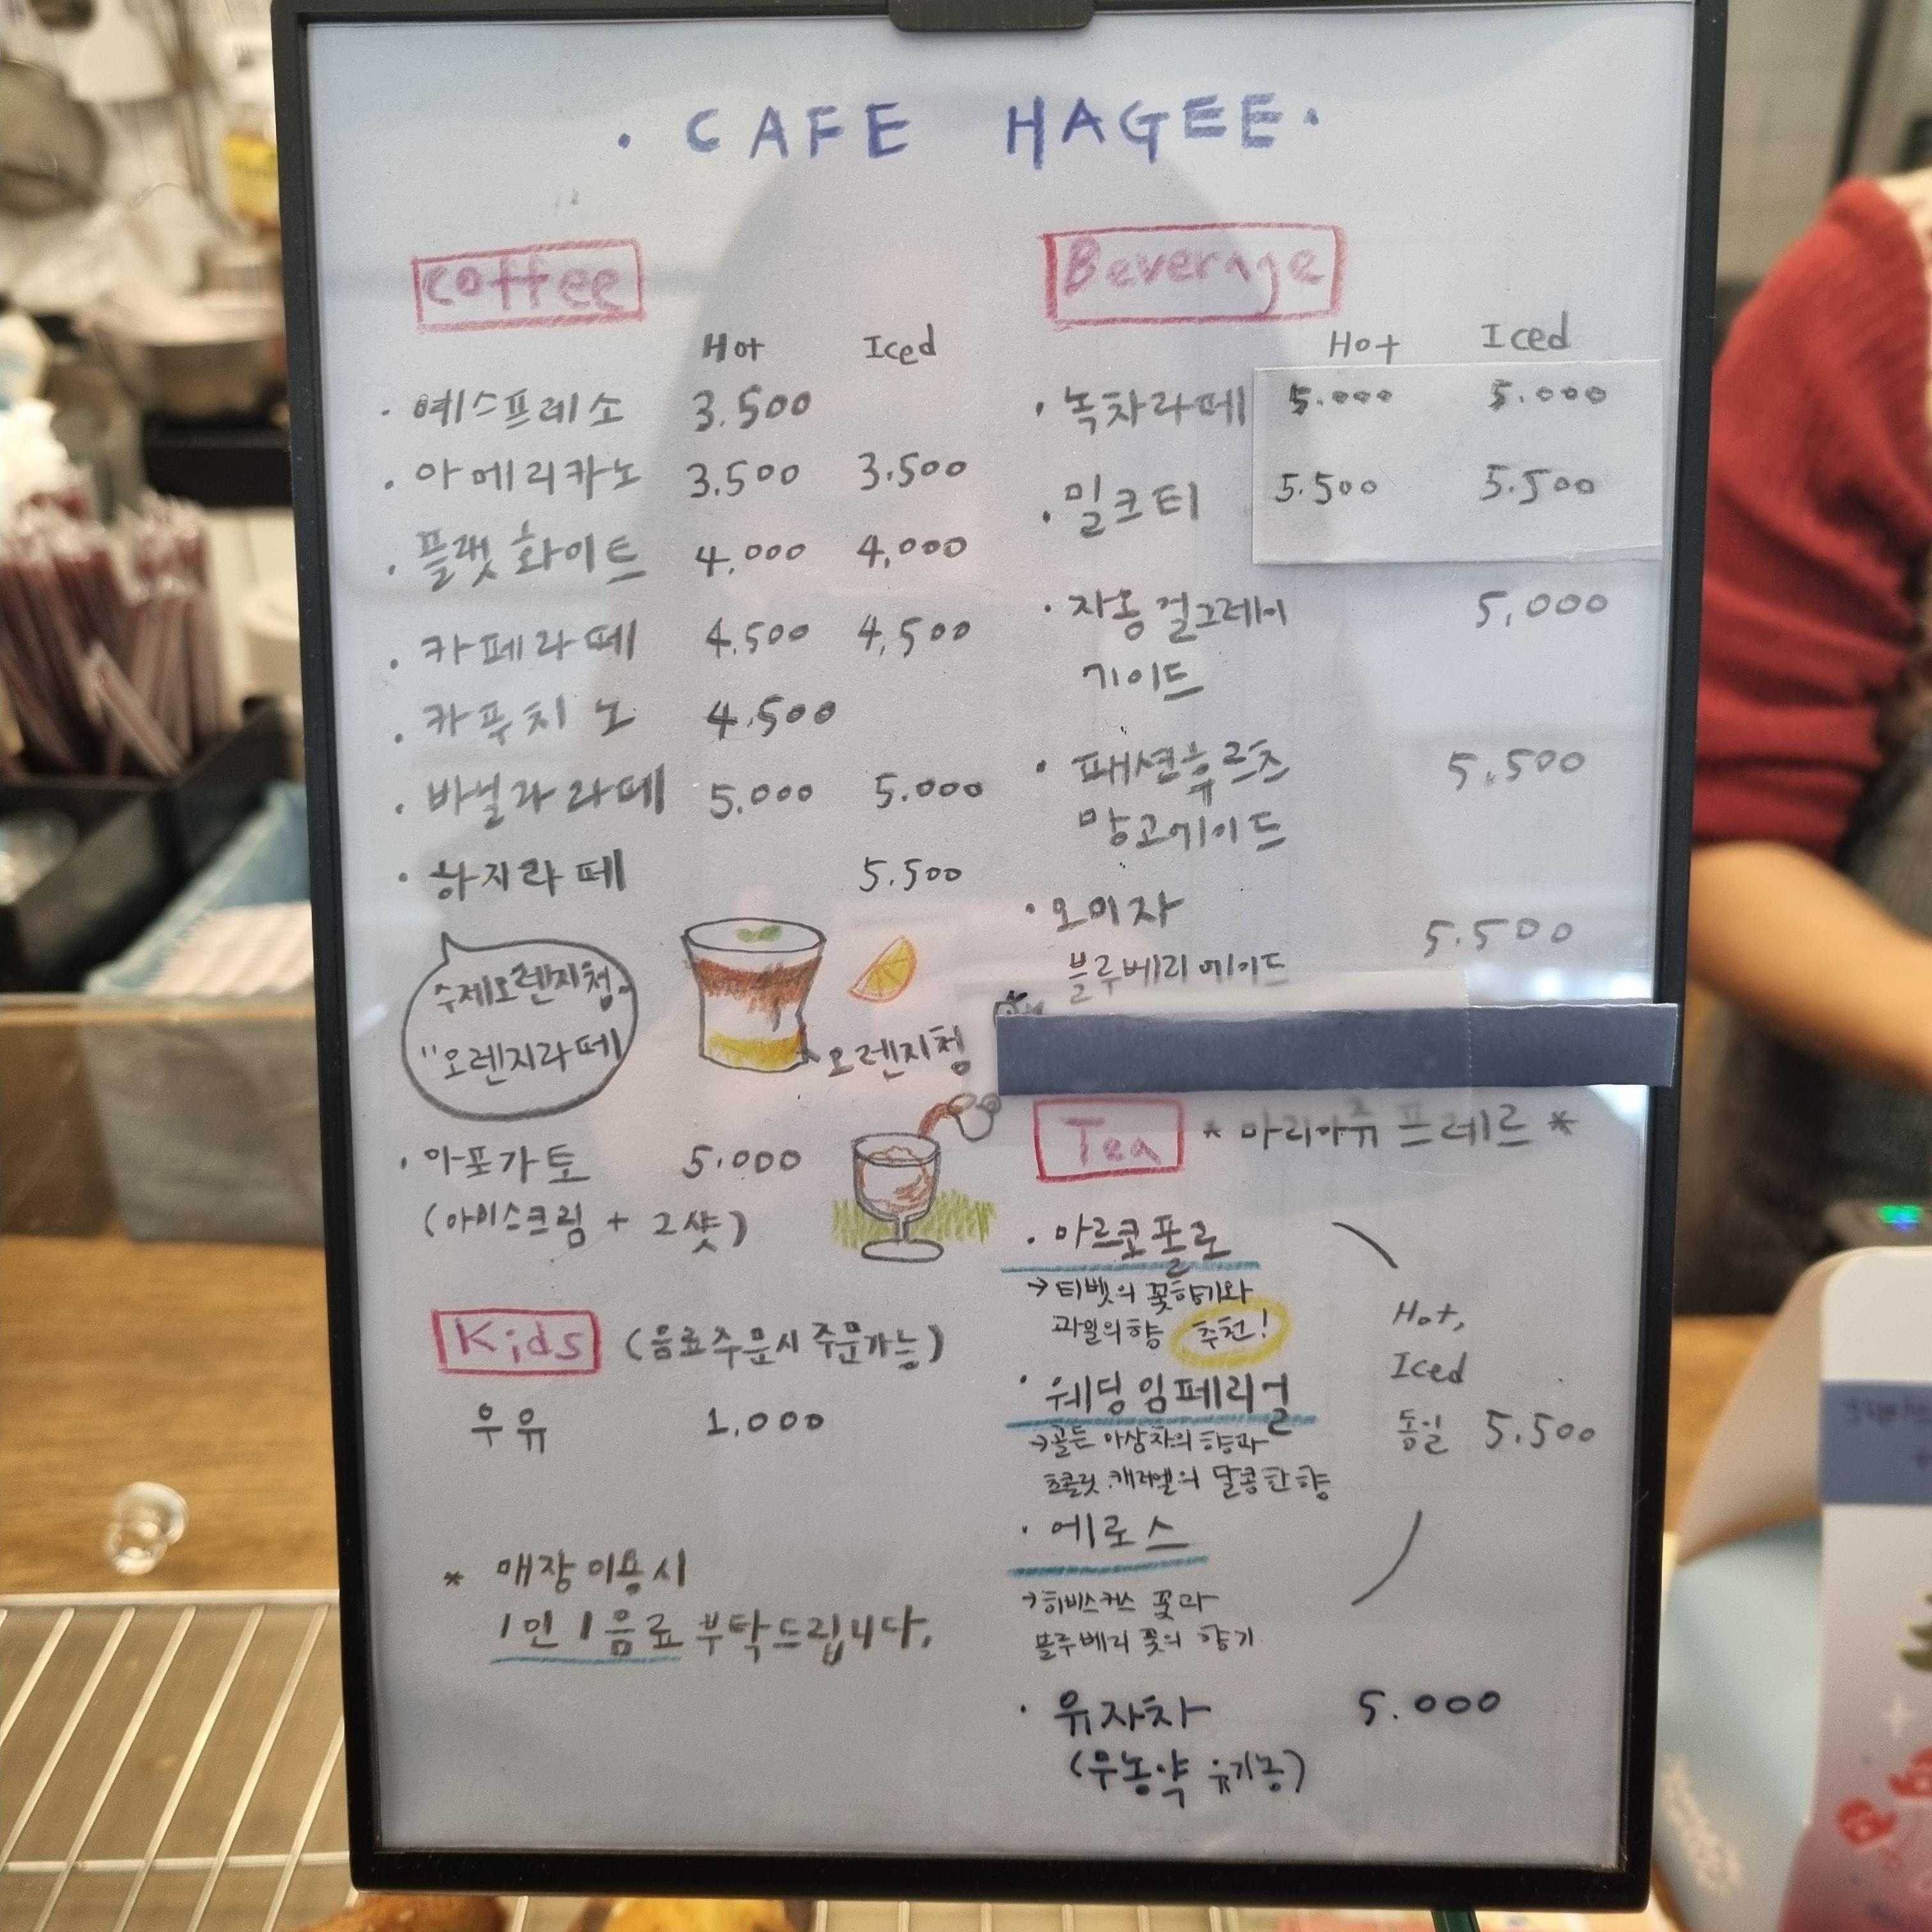 · CAFE HAGEE ·
Coffee
Hot Iced
· 에스프레소 3.500
· 아메리카노 3.500 3.500
· 플랫 화이트 4,000 4,000
· 카페라떼 4.500 4,500
· 카푸치노 4.500
· 바닐라 라떼 5.000 5.000
· 하지라떼 5.500
수제오렌지청.
"오렌지라떼
오렌지청
· 아포가토 5.000
(아이스크림 + 2샷)
Kids (음료주문시 주문가능)
우유 1,000
* 매장이용시
1인 1음료 부탁드립니다.
Beverage
Hot Iced
· 녹차라떼 5.000 5.000
· 밀크티 5.500 5.500
· 자몽 얼그레이 5,000
기이드
· 패션후르츠 5.500
망고에이드
· 오미자 5.500
블루베리 에이드
Tea * 마리아쥬 프레르 *
· 마르코폴로
→ 티벳의 꽃향기와
과일의향 추천!
· 웨딩 임페리얼
→ 골든 아삼차의 향과
초콜릿.캐러멜의 달콤한향
· 에로스
→ 히비스커스 꽃과
블루베리 꽃의 향기
Hot,
Iced
동일 5.500
· 유자차 5.000
(무농약 유기농)